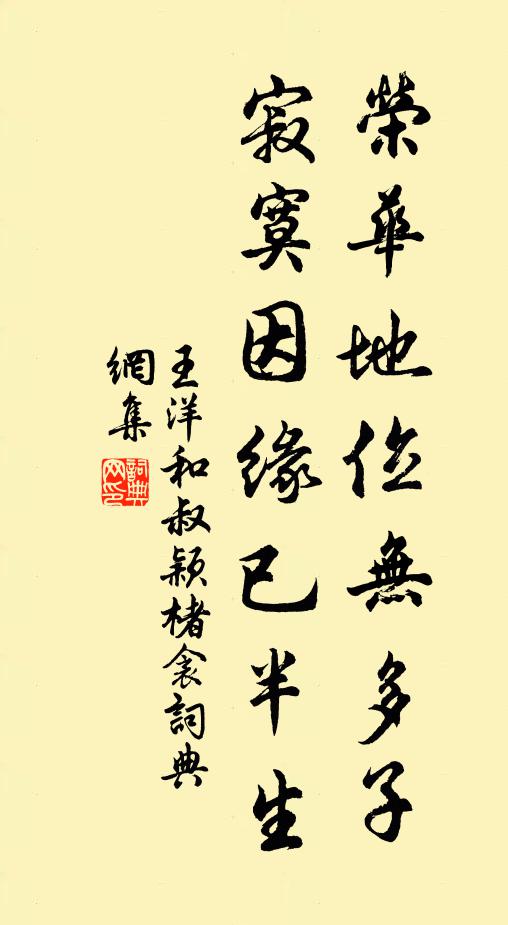 榮華地位無多子
寂寞因緣已半生
王洋和叔穎楮衾詞典
網集
詞典
網印